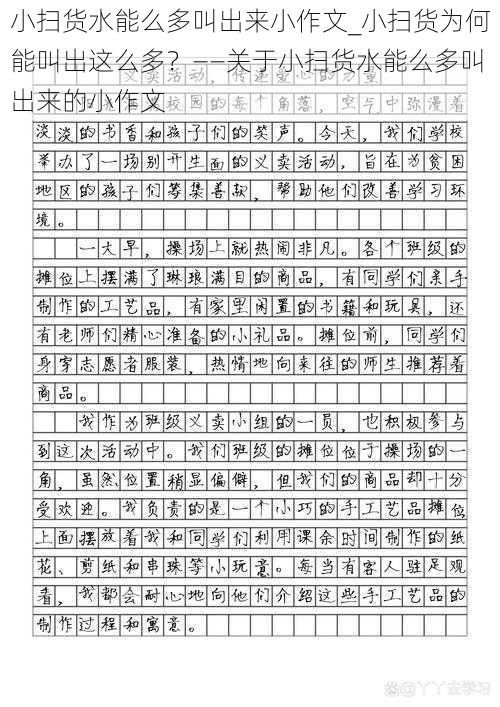 小扫货水能么多叫出来小作文_小扫货为何
能叫出这么多？——关于小扫货水能么多叫
出来的小作文
义卖活动，传递爱心的力量
校园的每个角落，空气中弥漫着
淡淡的书香和孩子们的笑声。今天，我们学校
举办了一场别开生面的义卖活动，旨在为贫困
地区的孩子们筹集善款，帮助他们改善学习环
境。
一大早，操场上就热闹非凡。各个班级的
摊位上摆满了琳琅满目的商品，有同学们亲手
制作的工艺品，有家里闲置的书籍和玩具，还
有老师们精心准备的小礼品。摊位前，同学们
身穿志愿者服装，热情地向来往的师生推荐着
商品。
我作为班级义卖小组的一员，也积极参与
到这次活动中。我们班级的摊位位于操场的一
角，虽然位置稍显偏僻，但我们的商品却十分
受欢迎。我负责的是一个小巧的手工艺品摊位
上面摆放着我和同学们利用课余时间制作的纸
花、剪纸和串珠等小玩意。每当有客人驻足观
看，我都会耐心地向他们介绍这些手工艺品的
制作过程和寓意。
@丫丫去学习